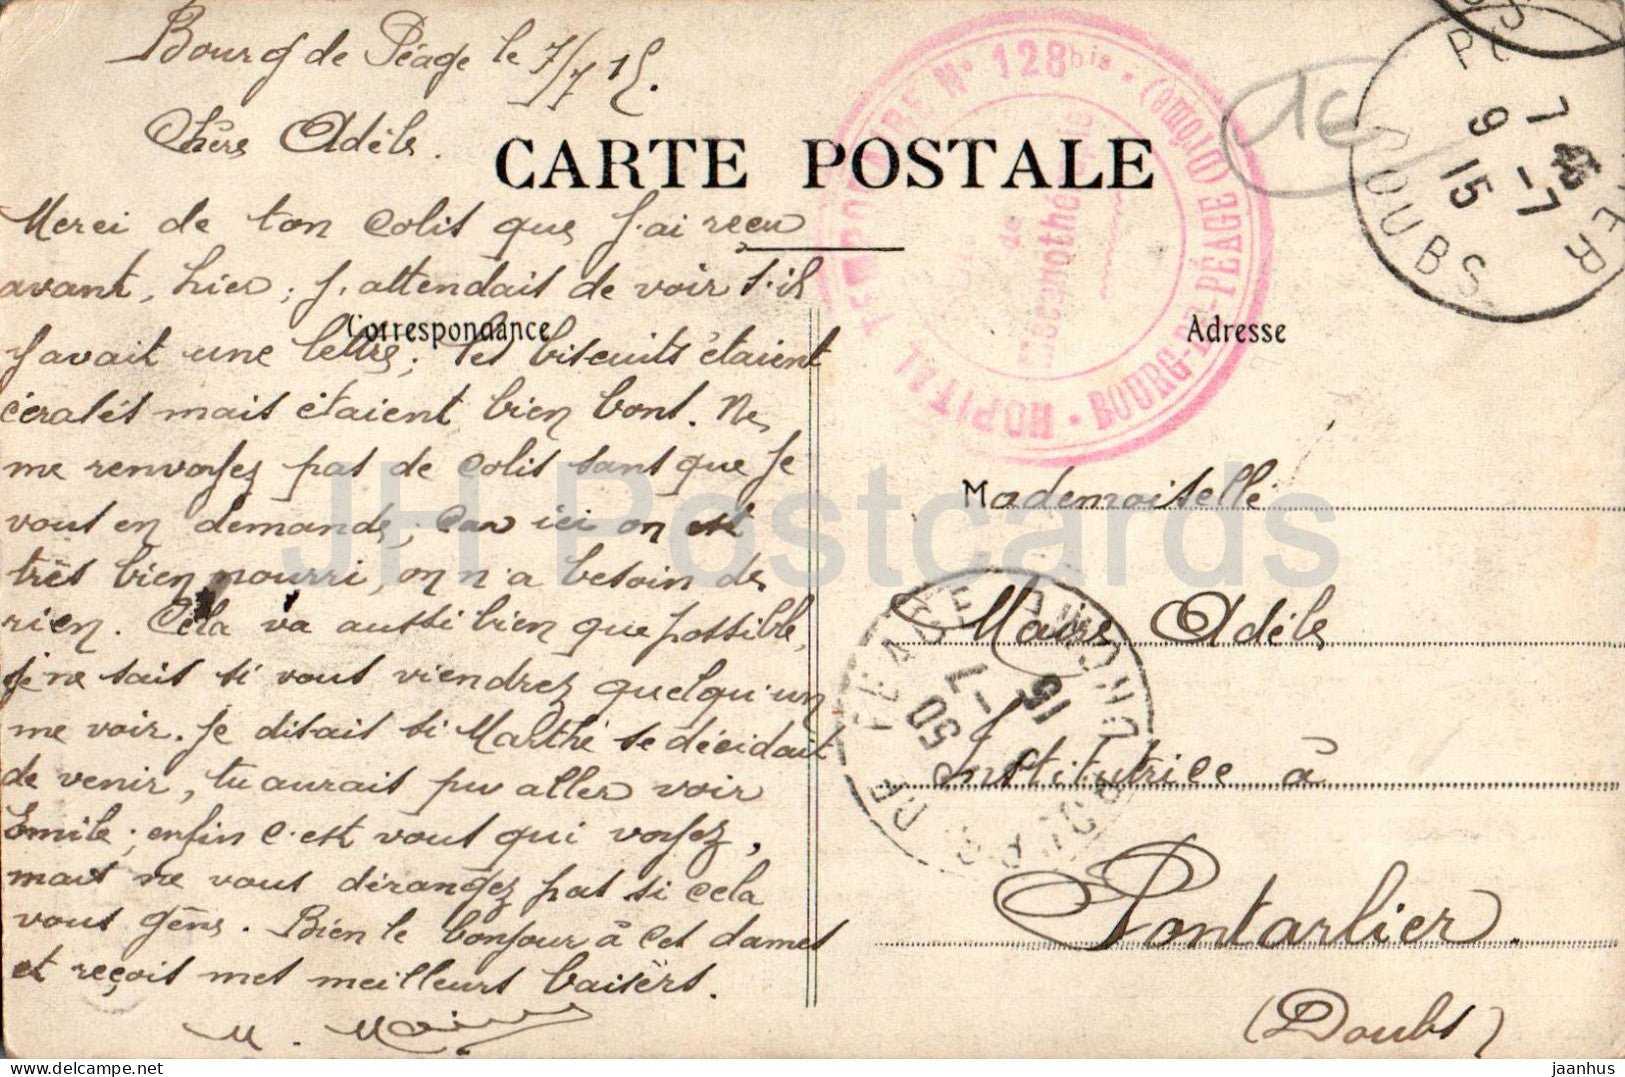 Bourg de Péage le 7/7 15.
Chère Adèle.
CARTE POSTALE
Merci de ton colis que j'ai reçu
avant, hier; j'attendais de voir s'il
Correspondance
y avait une lettre; tes biscuits étaient
écrasés mais étaient bien bons. Ne
me renvoyez pas de colis sans que je
vous en demande; car ici on est
très bien nourri, on n'a besoin de
rien. Cela va aussi bien que possible,
je ne sais si vous viendrez quelqu'un
me voir. Je disais si Marthe se décidait
de venir, tu aurais pu aller voir
Emile; enfin c'est vous qui voyez,
mais ne vous dérangez pas si cela
vous gêne. Bien le bonjour à ces dames
et reçois mes meilleurs baisers.
Adresse
Mademoiselle
Maire Adèle
Institutrice à
Pontarlier.
(Doubs)
HOPITAL TEMPORAIRE N° 128 bis • BOURG-DE-PÉAGE (Drôme) •
de
Mécanothérapie
DOUBS
7 45
9 -7
15
BG DE PEAGE
DROME
15
7 -
50
16
JH Postcards
delcampe.net
jaanhus